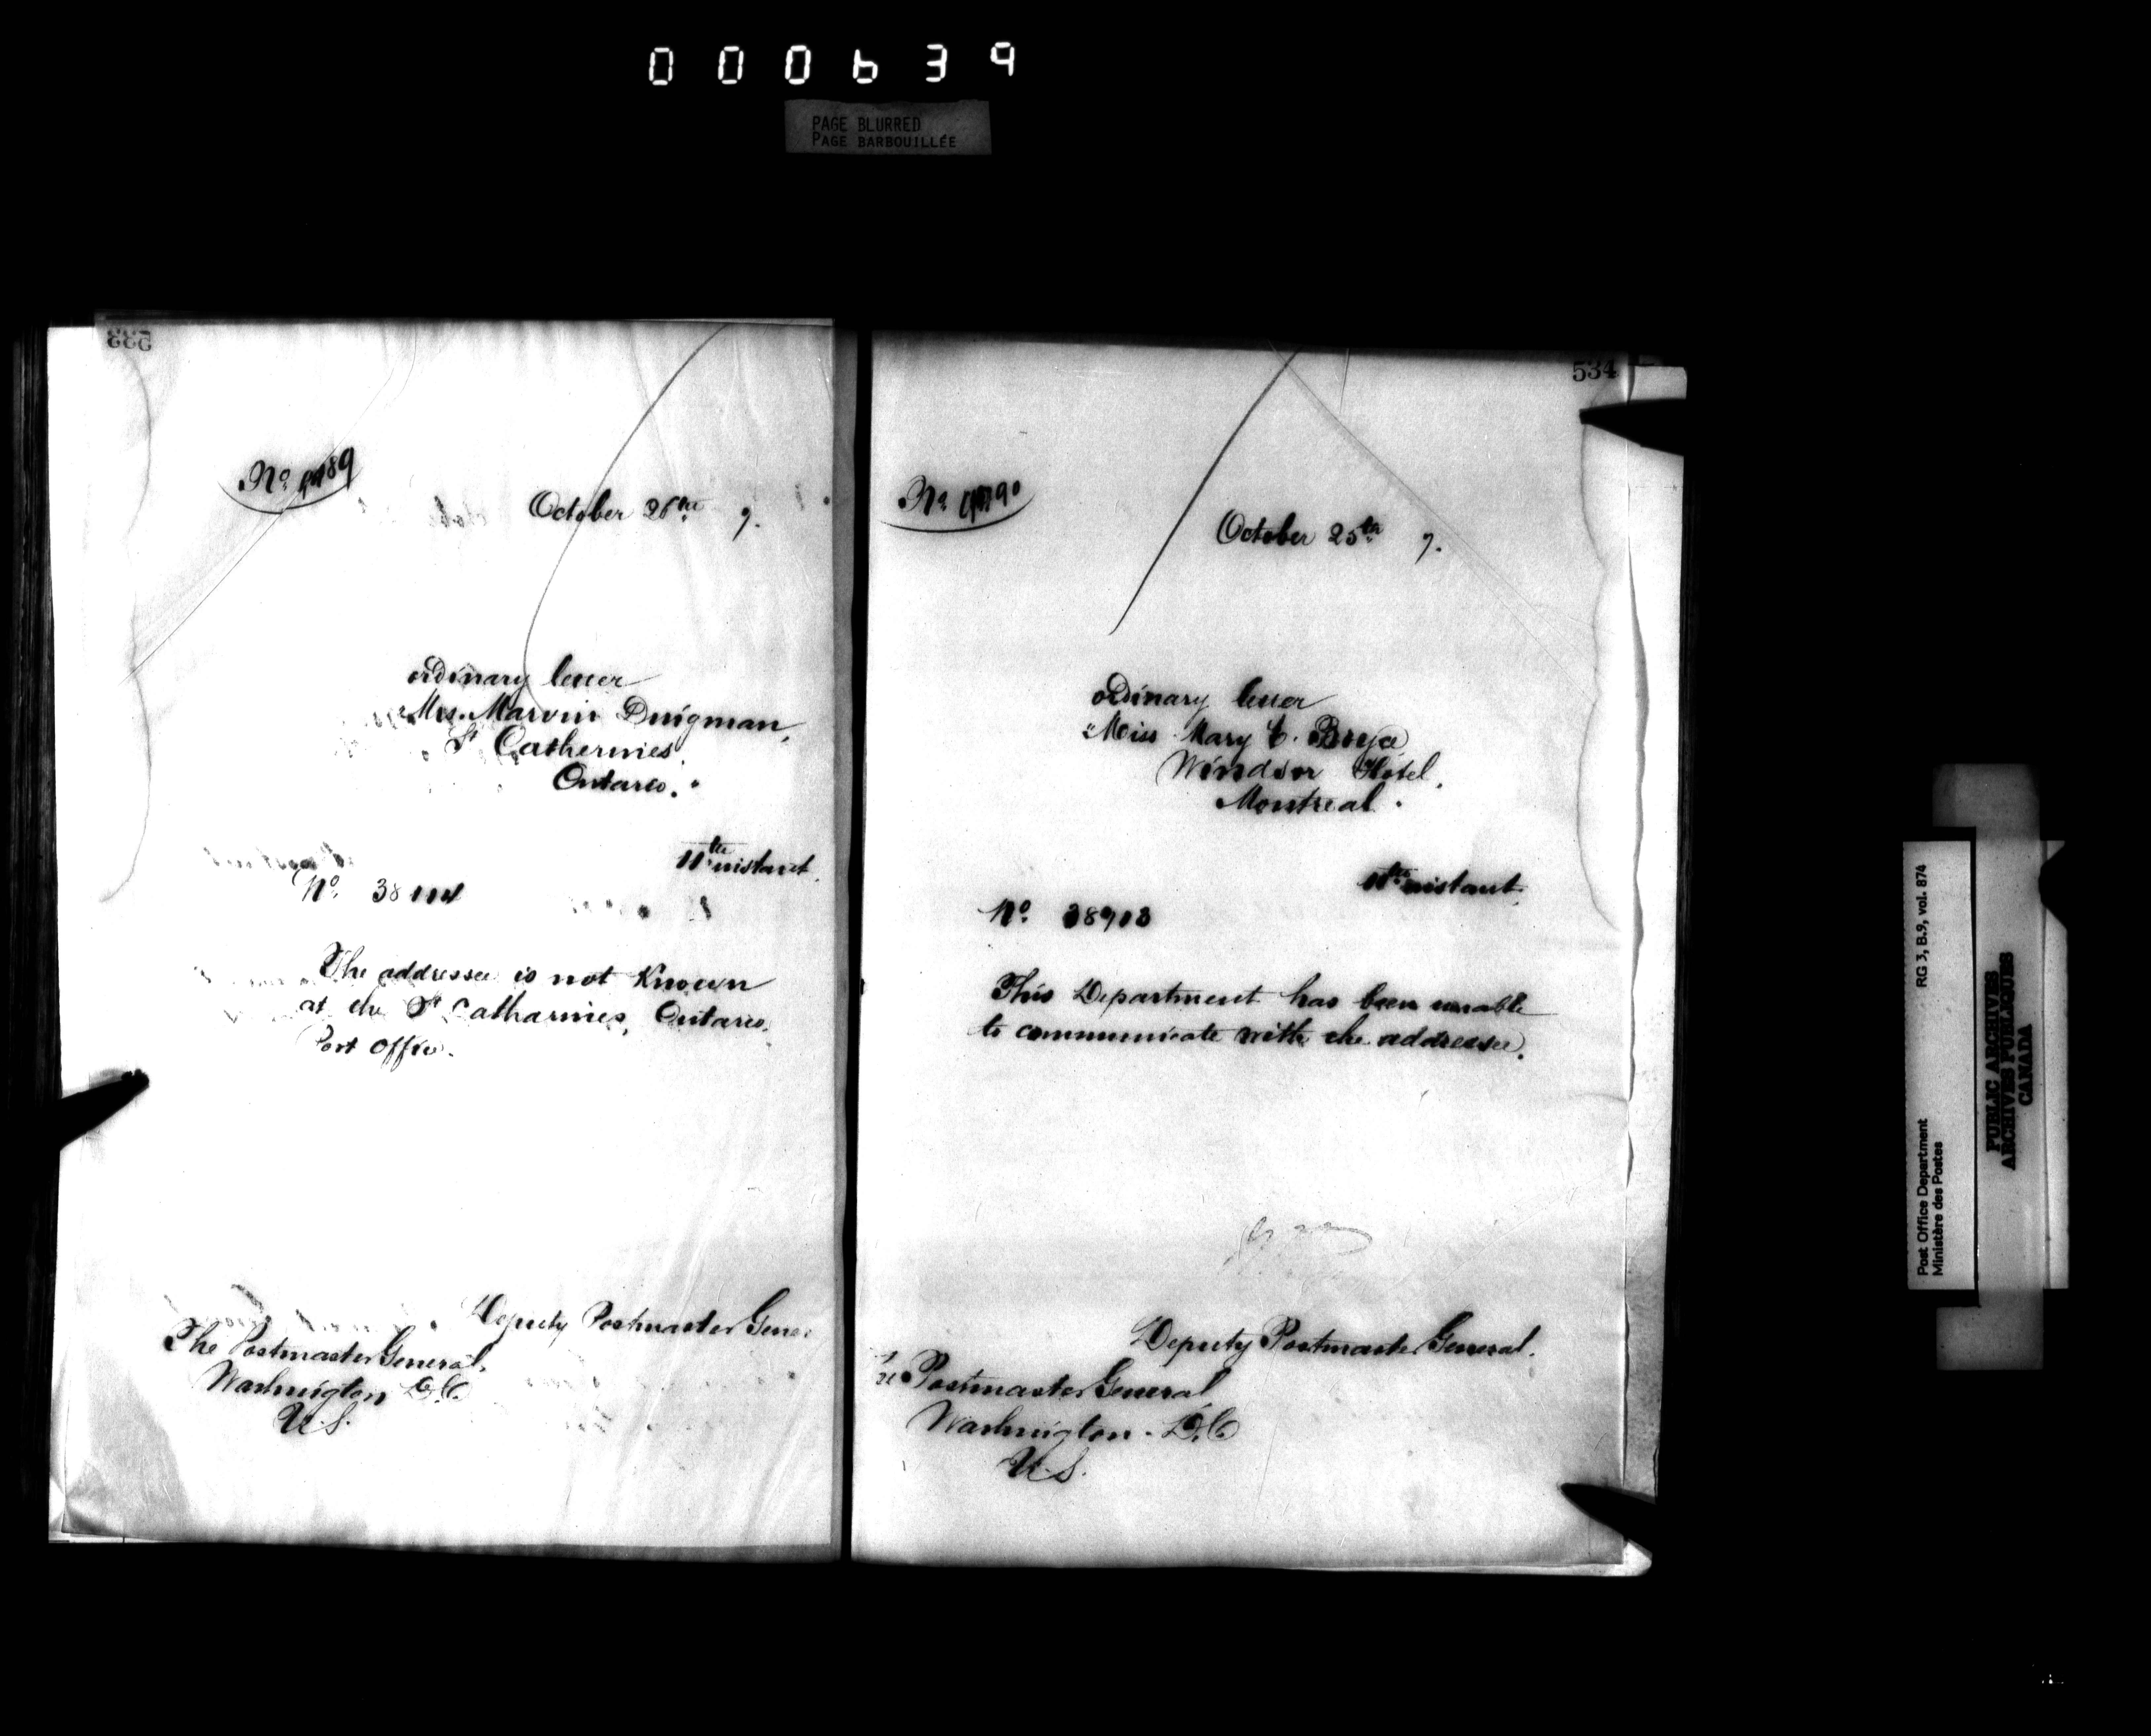 000639
PAGE BLURRED
PAGE BARBOUILLÉE
533
No.
October 26th 7.
ordinary letter
"Mrs. Marvin Duigman,
St Catherines,
Ontario."
11th instant.
No.
The addressee is not Known
at the St Catharines, Ontario,
Post Office.
Deputy Postmaster Gener
The Postmaster General,
Washington D.C.
U.S.
534
No.
October 25th 7.
ordinary letter
"Miss Mary
Windsor Hotel,
Montreal."
11th instant.
No. 38913
This Department has been unable
to communicate with the addressee.
Deputy Postmaster General.
Postmaster General
Washington. D.C
U.S.
Post Office Department
Ministère des Postes
RG 3, B.9, vol. 874
PUBLIC ARCHIVES
ARCHIVES PUBLIQUES
CANADA